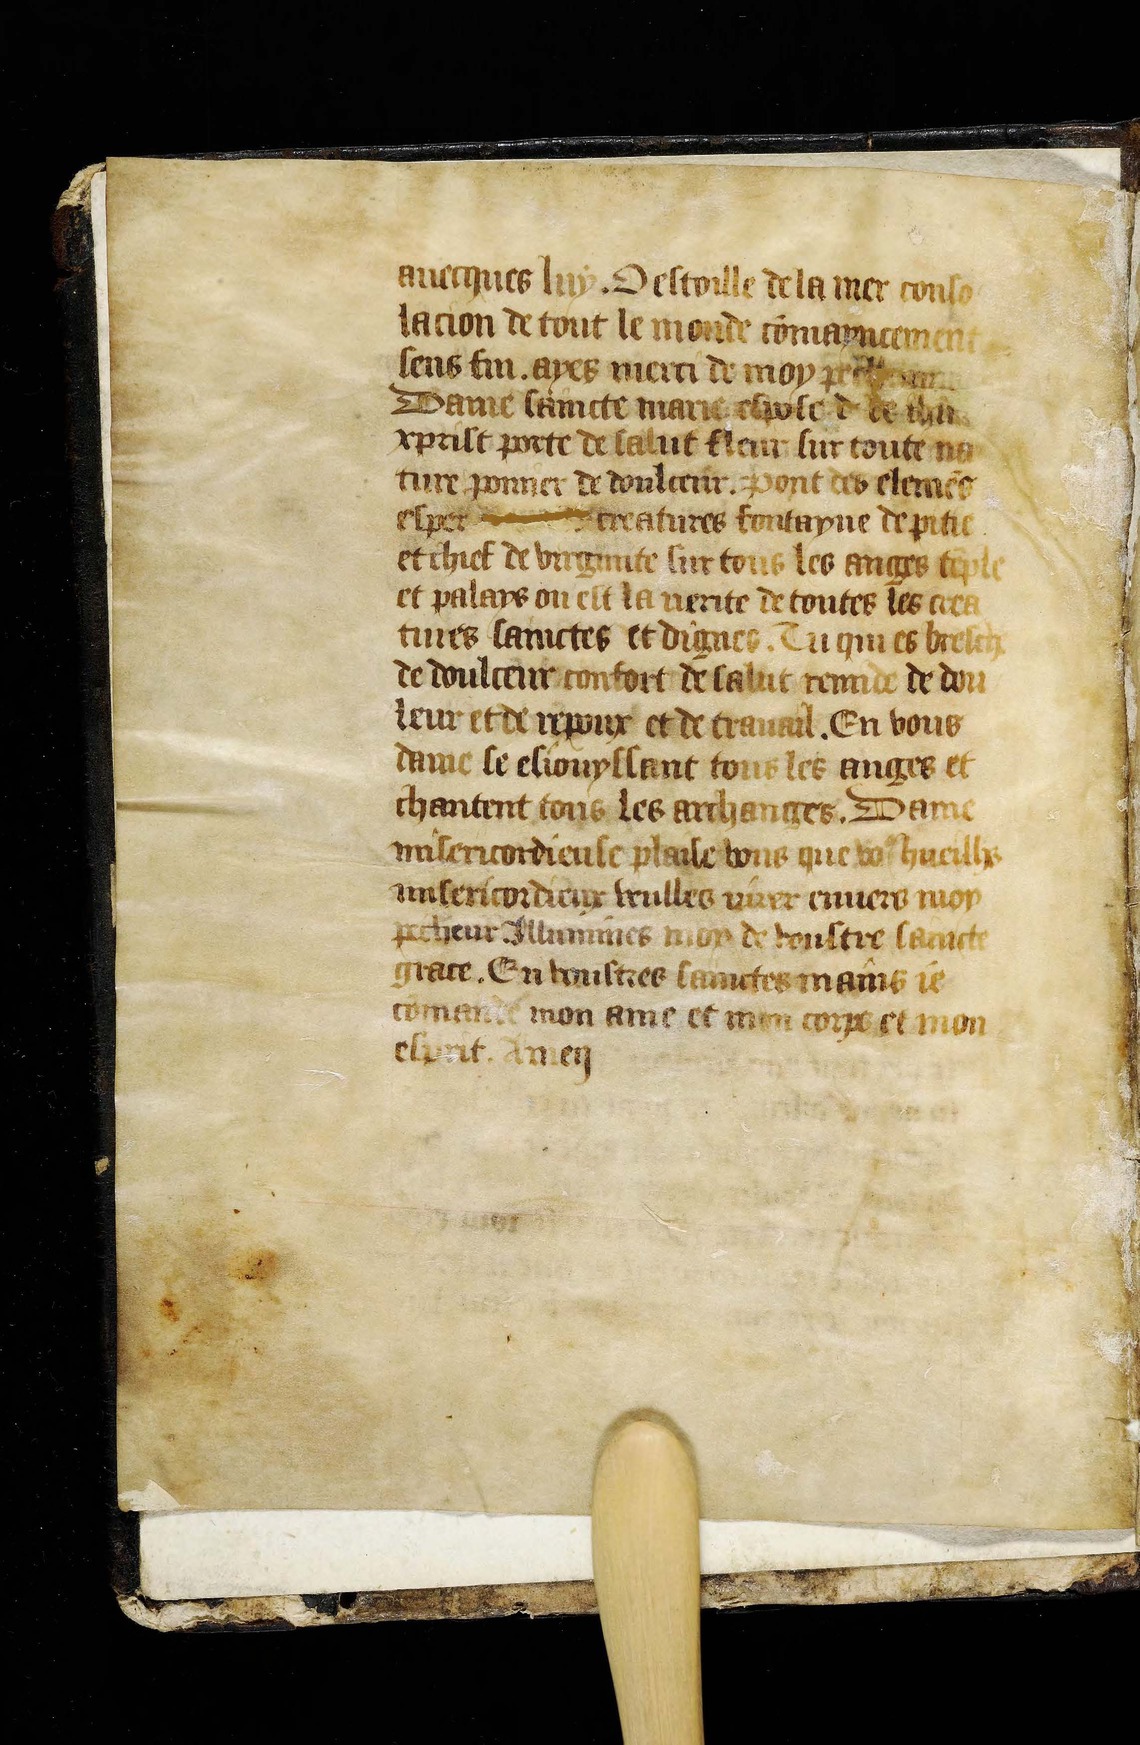 auecques luy. O estoille de la mer conso
lacion de tout le monde cōmayncement
sens fin. ayes merci de moy
Dame saincte marie espose de
xprist porte de salut fleur sur toute na
ture ponier de doulceur. Pont des elemēs
esper creatures fontayne de pitie
et chief de virginite sur tous les anges tēple
et palays ou est la uerite de toutes les crea
tures sainctes et dignes. Tu qui es bresch
de doulceur confort de salut remide de dou
leur et de repoux et de trauail. En vous
dame se esiouyssant tous les anges et
chantent tous les archanges. Dame
misericordieuse plaise vous que
misericordieux veulles envers moy
pecheur Illumines moy de voustre saincte
grace. En voustres sainctes mains ie
cōmande mon ame et mon corps et mon
esprit. Amen